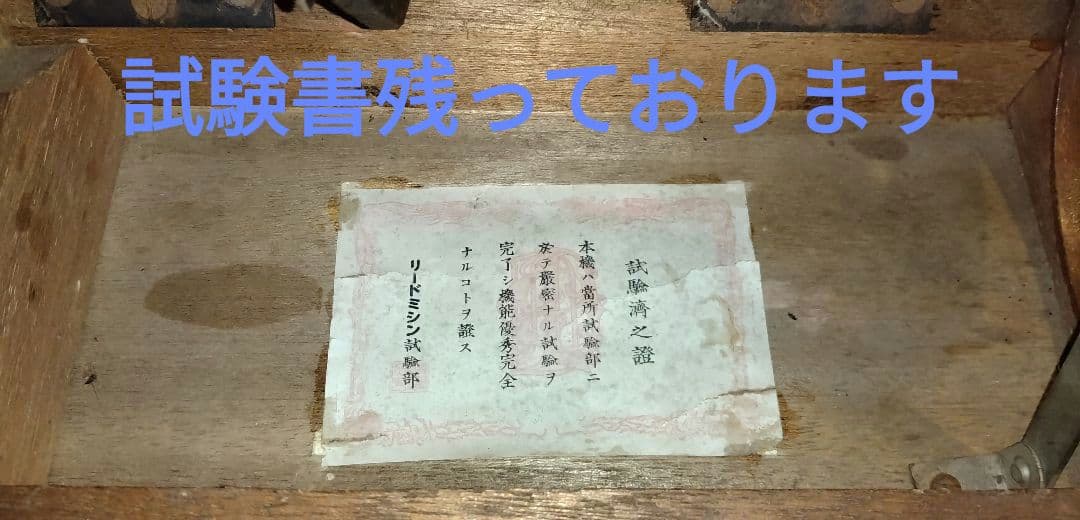 試験書残っております
試驗濟之證
本機ハ當所試驗部ニ
於テ嚴密ナル試驗ヲ
完了シ機能優秀完全
ナルコトヲ證ス
リードミシン試驗部